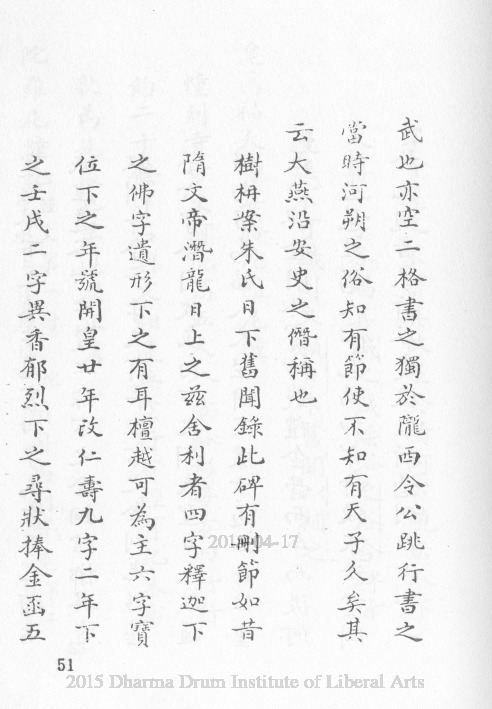 武也亦空二格書之獨於隴西令公跳行書之
當時河朔之俗知有節使不知有天子久矣其
云大燕沿安史之僭稱也
樹枏案朱氏日下舊聞錄此碑有刪節如昔
隋文帝潛龍日上之茲舍利者四字釋迦下
之佛字遺形下之有耳檀越可為主六字寶
位下之年號開皇廿年改仁壽九字二年下
之壬戌二字異香郁烈下之尋狀捧金函五
51
2015-04-17
2015 Dharma Drum Institute of Liberal Arts